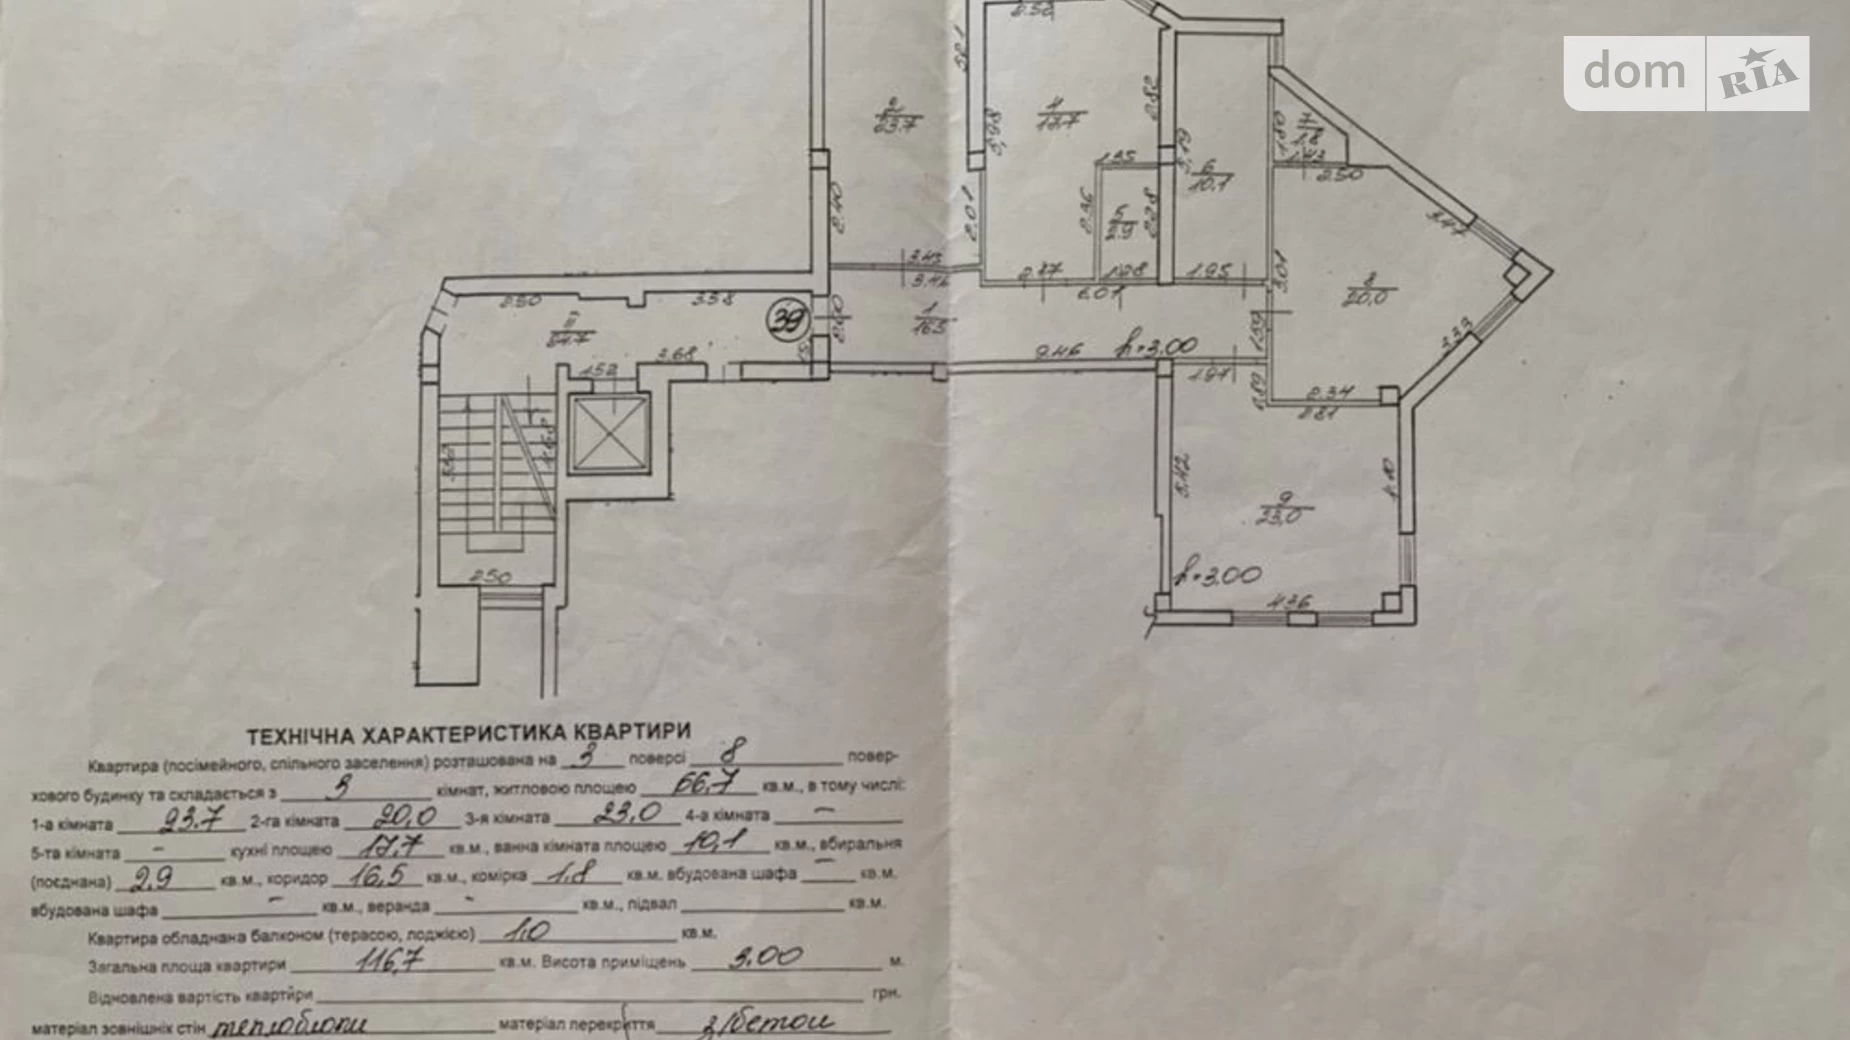 dom RIA
2.50
3.81
2
23.7
5.98
4
17.7
2.82
5.19
6
10.1
1.80
7
1.8
2.50
1.25
2.40
2.01
2.36
5
2.28
3.47
3.45
3.46
2.37
1.28
1.95
6.01
3.01
8
20.0
2.50
3.38
39
1
16.5
III
3.68
1.52
9.46
h=3.00
1.97
1.59
3.33
2.34
2.81
5.42
9
23,0
2.50
h=3.00
4.36
ТЕХНІЧНА ХАРАКТЕРИСТИКА КВАРТИРИ
Квартира (посімейного, спільного заселення) розташована на 3 поверсі 8 повер-
хового будинку та складається з 3 кімнат, житловою площею 66,7 кв.м., в тому числі:
1-а кімната 23.7 2-га кімната 20,0 3-я кімната 23,0 4-а кімната –
5-та кімната – кухні площею 17,7 кв.м., ванна кімната площею 10,1 кв.м., вбиральня
(поєднана) 2,9 кв.м., коридор 16,5 кв.м., комірка 1.8 кв.м. вбудована шафа – кв.м.
вбудована шафа – кв.м., веранда - кв.м., підвал кв.м.
Квартира обладнана балконом (терасою, лоджією) 1,0 кв.м.
Загальна площа квартири 116,7 кв.м. Висота приміщень 3.00 м.
Відновлена вартість квартири грн.
матеріал зовнішніх стін теплоблоки матеріал перекриття з/бетон